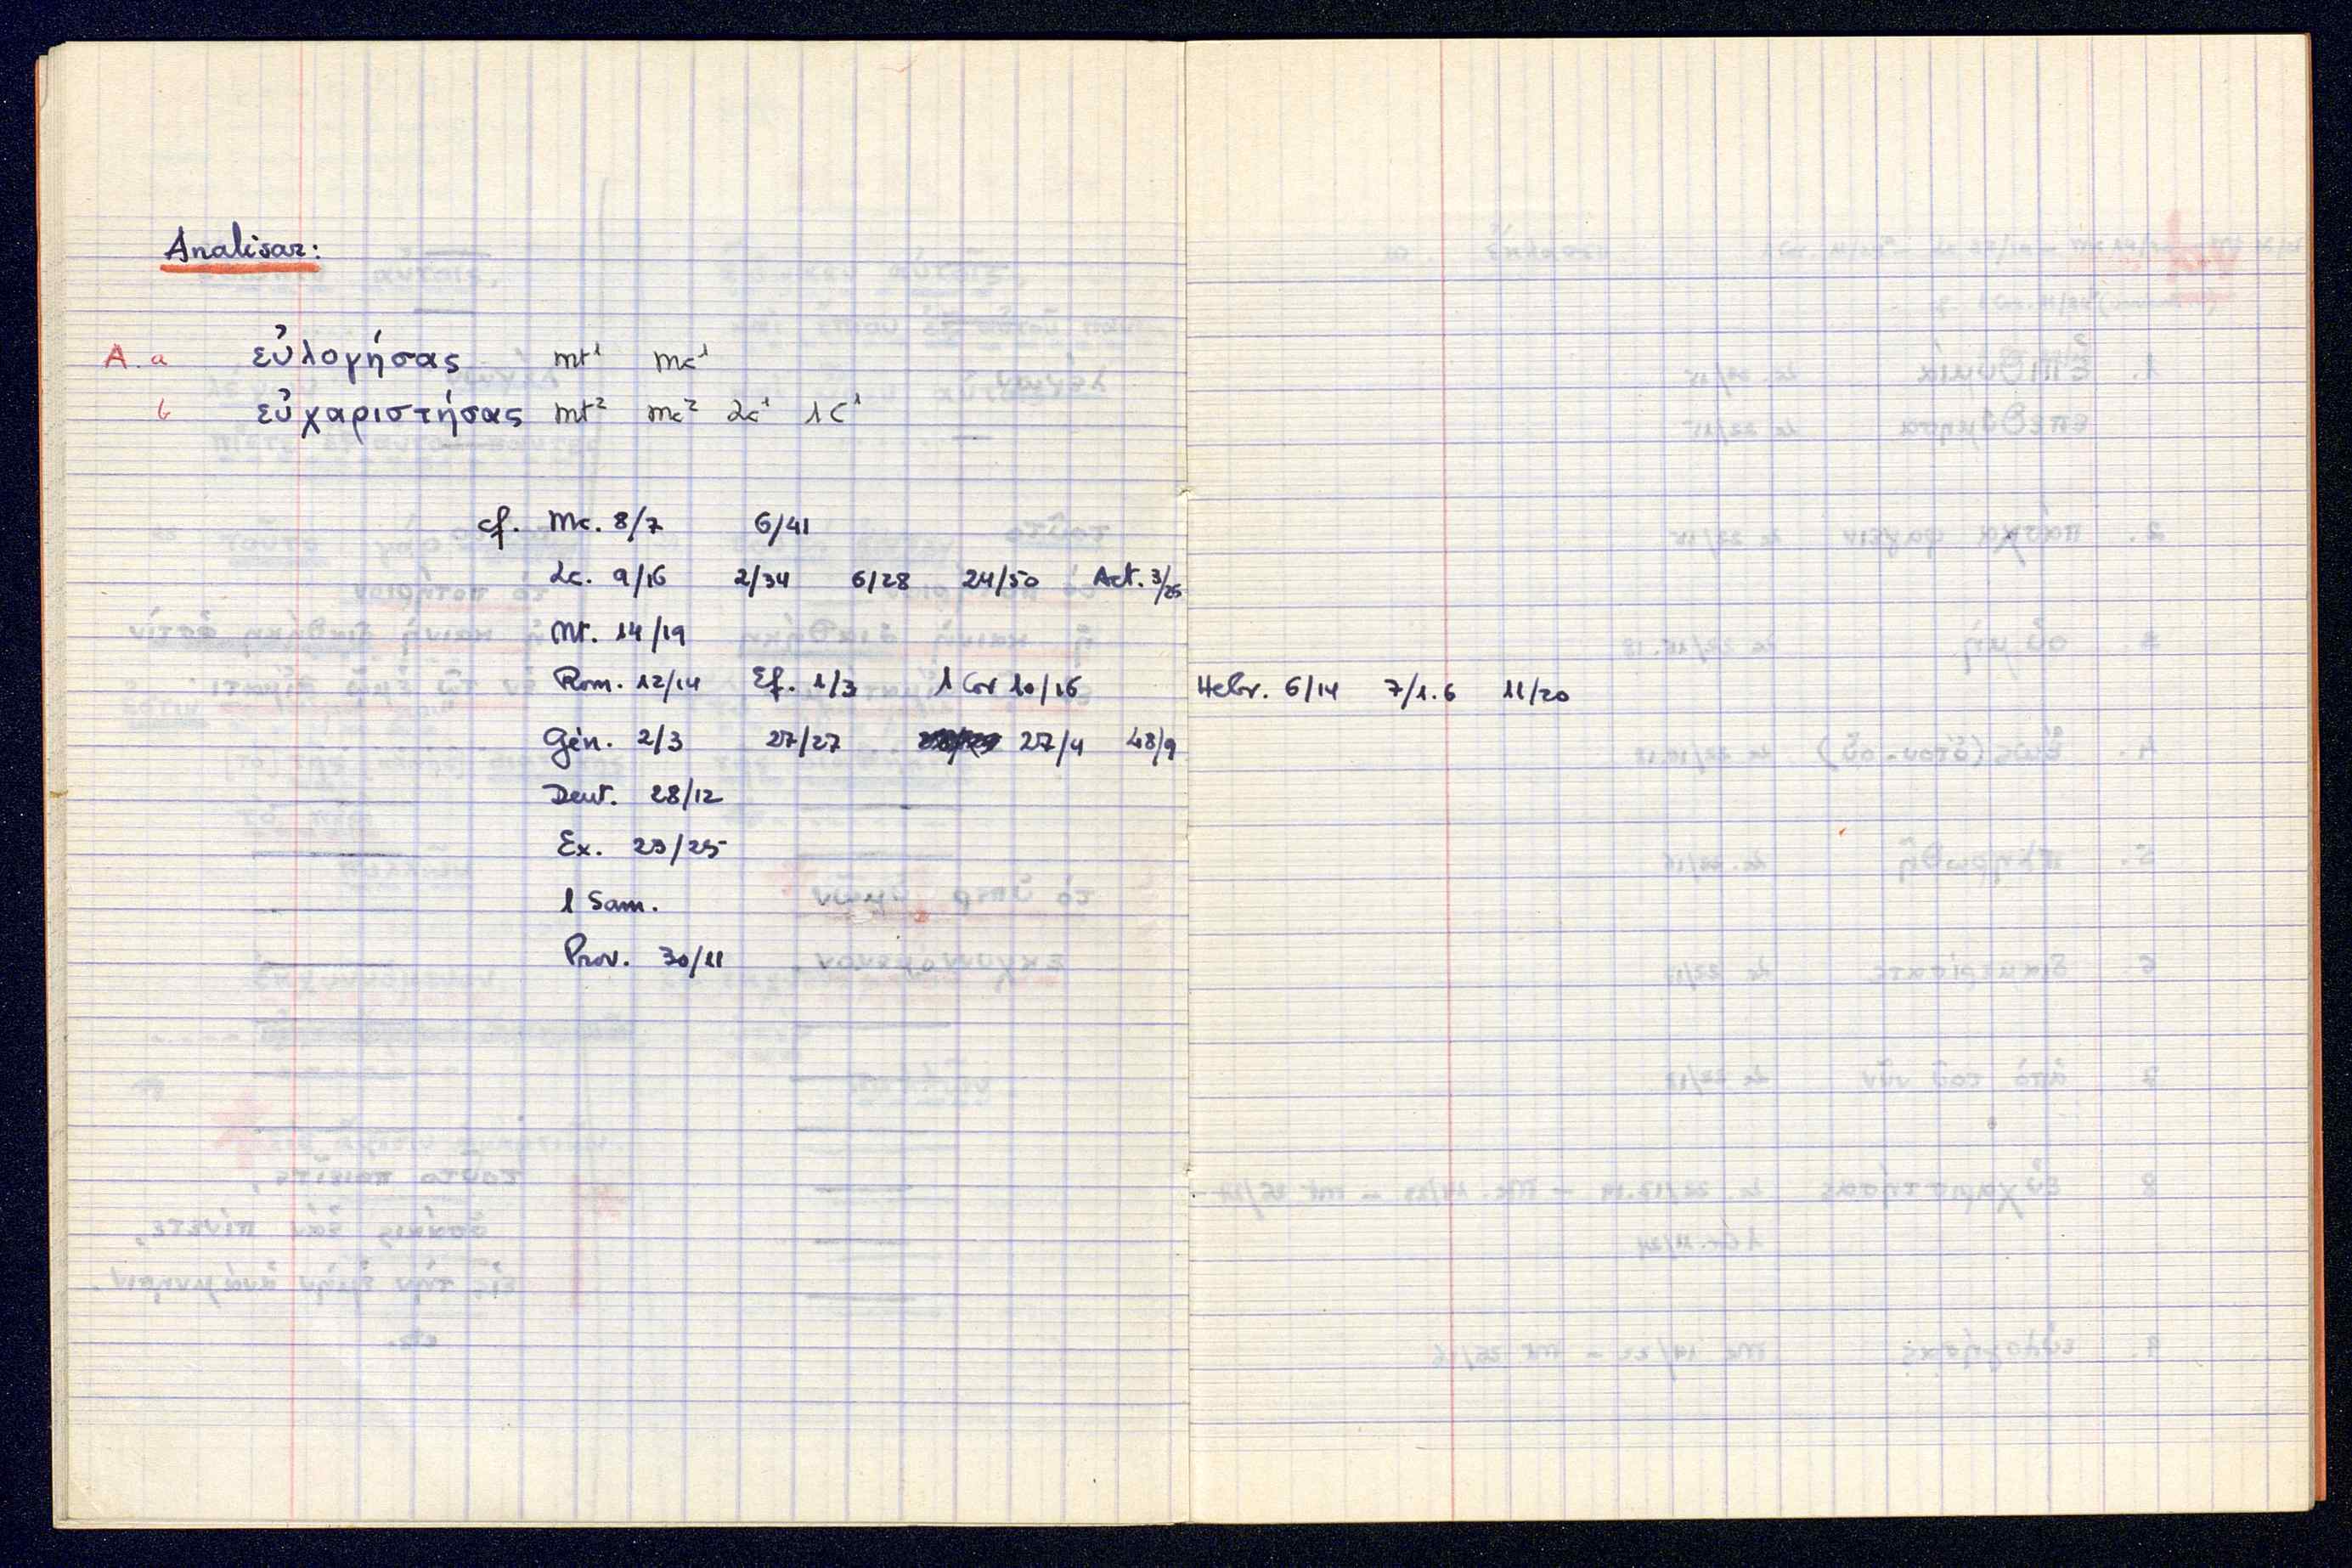 Analisar:
A. a εὐλογήσας mt¹ mc¹
b εὐχαριστήσας mt² mc² Lc¹ 1C¹
cf. Mc. 8/7 6/41
Lc. 9/16 2/34 6/28 24/50 Act. 3/25
Mt. 14/19
Rom. 12/14 Ef. 1/3 1 Cor 10/16 Hebr. 6/14 7/1.6 11/20
Gén. 2/3 27/27 27/4 48/9
Deut. 28/12
Ex. 23/25
1 Sam.
Prov. 30/11